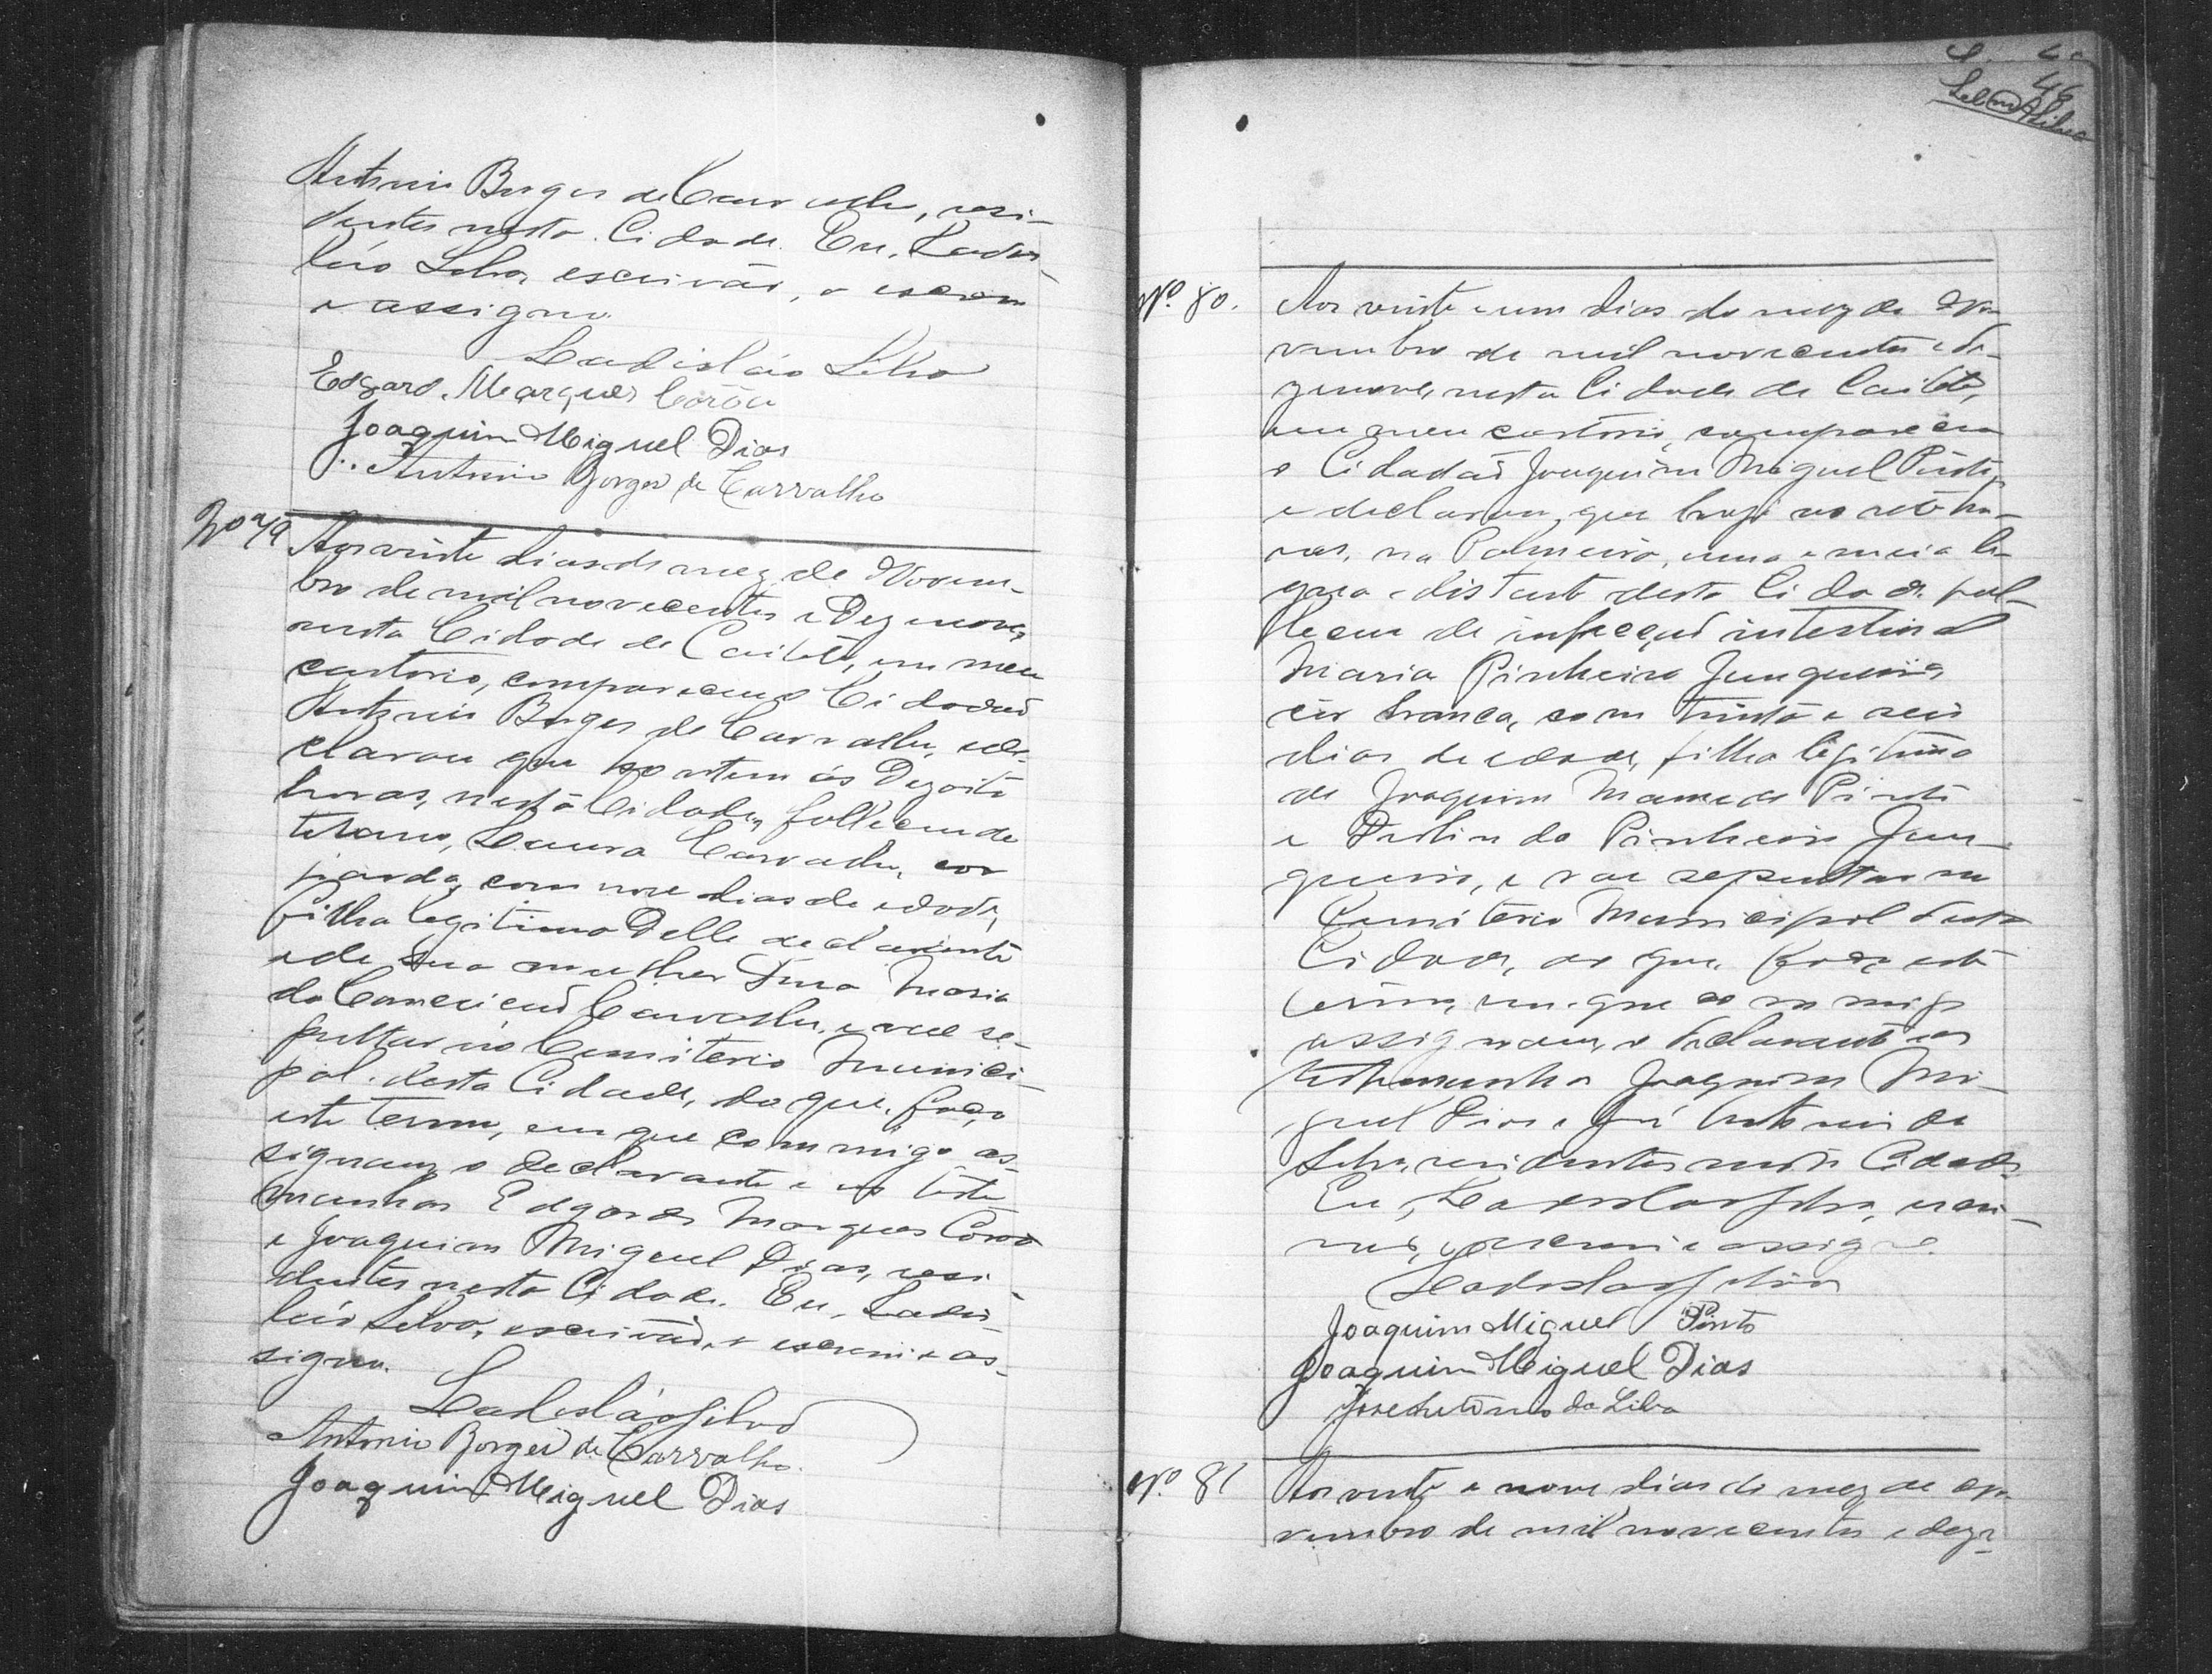 Antonio Borges de Carvalho, resi-
dentes nesta Cidade. Eu, Ladis-
láo Silva, escrivão, o escrevi
e assigno.
Ladisláo Silva
Edgard Marques Corôa
Joaquim Miguel Dias
Antonio Borges de Carvalho
Nº 79
Aos vinte dias do mez de Novem-
bro de mil novecentos e Dezenove,
nesta Cidade de Caiteté, em meu
cartorio, compareceu o Cidadão
Antonio Borges de Carvalho, e de-
clarou que hontem ás Dezoito
horas, nesta Cidade, falleceu de
tetano, Laura Carvalho, côr
parda, com nove dias de edade,
filha legitima Delle declarante
e de sua mulher Dona Maria
da Conceição Carvalho, e vae se-
pultar no Cemiterio Munici-
pal desta Cidade, do que, faço
este termo, em que commigo as-
signam, o declarante e as teste
munhas Edgard Marques Corôa
e Joaquim Miguel Dias, resi-
dentes nesta Cidade. Eu, Ladis
láo Silva, escrivão, o escrevi e as-
signo.
Ladisláo Silva
Antonio Borges de Carvalho.
Joaquim Miguel Dias
46
Nº 80.
Aos vinte e um dias do mez de No-
vembro de mil novecentos e de-
zenove, nesta Cidade de Caiteté,
em meu cartorio, compareceu
o Cidadão Joaquim Miguel Pinto,
e declarou, que hoje as sete ho-
ras, na Palmeira, uma e meia le-
gua distante desta Cidade fal-
leceu de infecção intestinal
Maria Pinheiro Junqueira,
côr branca, com trinta e seis
dias de edade, filha legitima
de Joaquim Mamede Pinto
e Pinheiro Jun-
queira, e vae sepultar no
Cemiterio Municipal desta
Cidade, do que, faço este
termo, em que commigo
assignam, o declarante e as
testemunhas Joaquim Mi-
guel Dias e José Antonio da
Silva, residentes nesta Cidade.
Eu, Ladislao Silva, escri-
vão, o escrevi e assigno.
Ladislao Silva
Joaquim Miguel Pinto
Joaquim Miguel Dias
José Antonio da Silva
Nº 81
Aos vinte e nove dias do mez de No-
vembro de mil novecentos e deze-